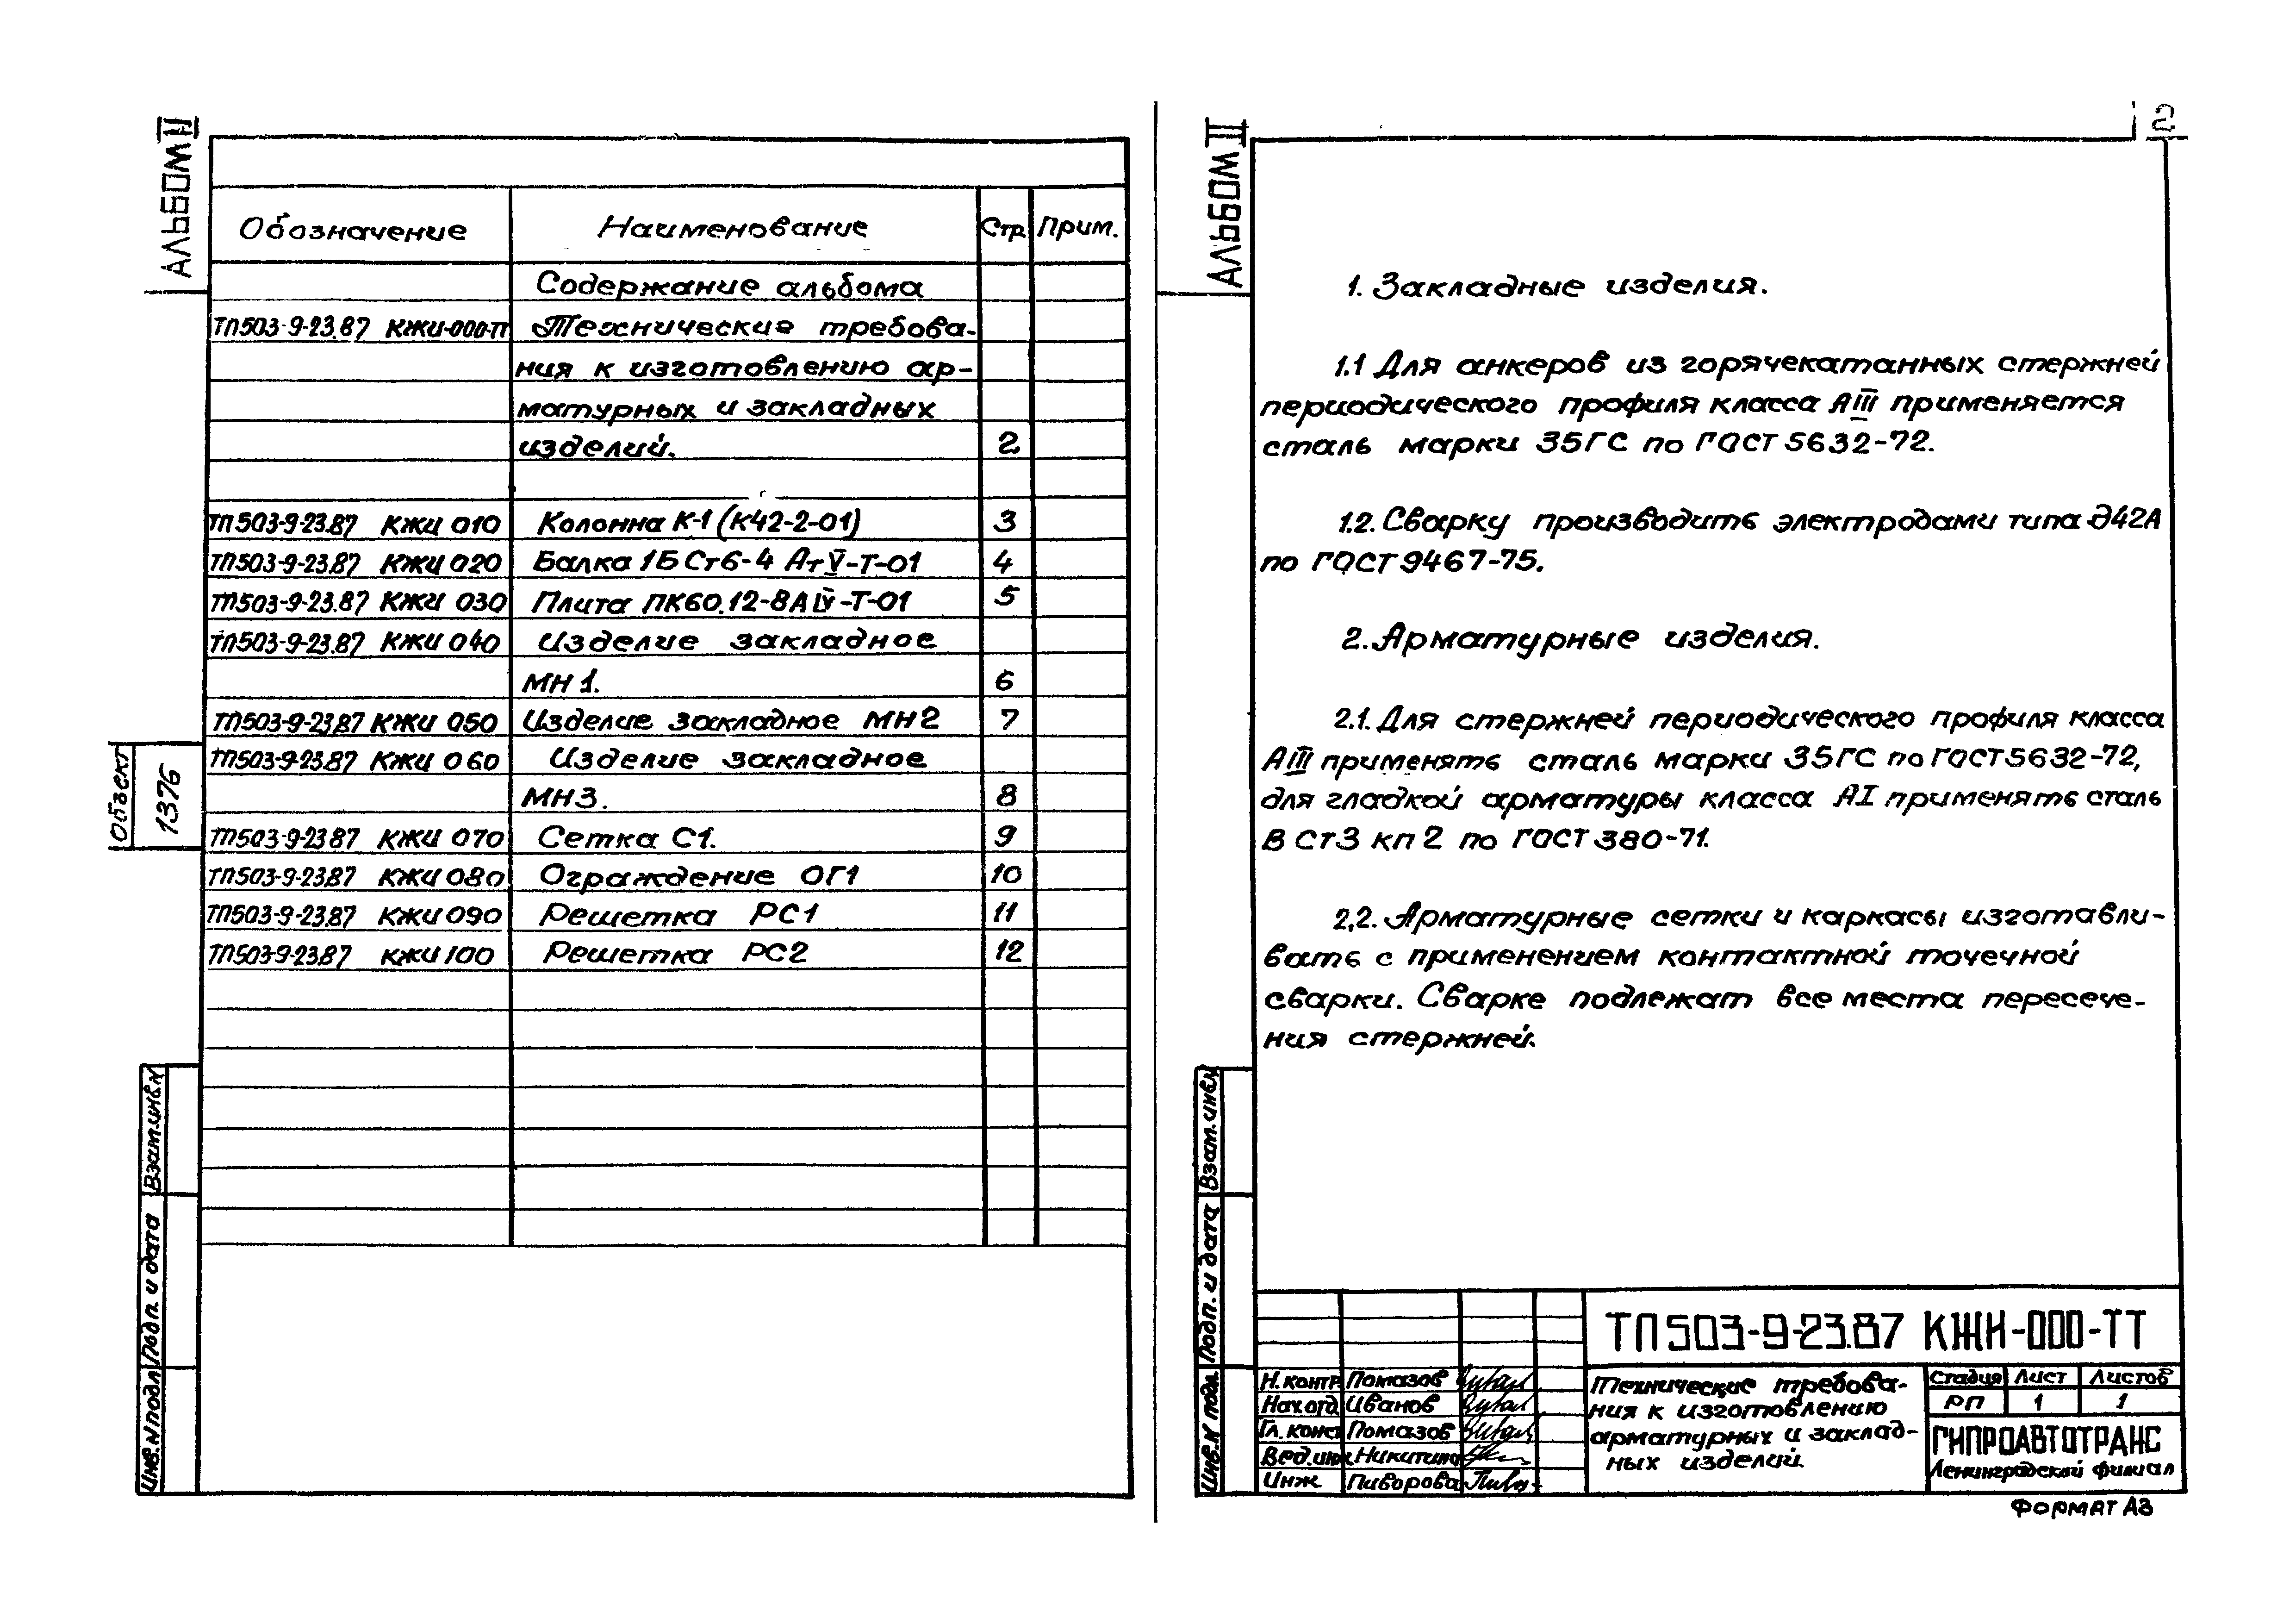 АЛЬБОМ II
Обозначение Наименование Стр. Прим.
Содержание альбома
ТП503-9-23.87 КЖИ-000-ТТ Технические требова-
ния к изготовлению ар-
матурных и закладных
изделий. 2
ТП503-9-23.87 КЖИ 010 Колонна К-1 (К42-2-01) 3
ТП503-9-23.87 КЖИ 020 Балка 1Б Ст6-4 АтV-Т-01 4
ТП503-9-23.87 КЖИ 030 Плита ПК60.12-8АIV-Т-01 5
ТП503-9-23.87 КЖИ 040 Изделие закладное
МН1. 6
ТП503-9-23.87 КЖИ 050 Изделие закладное МН2 7
ТП503-9-23.87 КЖИ 060 Изделие закладное
МН3. 8
ТП503-9-23.87 КЖИ 070 Сетка С1. 9
ТП503-9-23.87 КЖИ 080 Ограждение ОГ1 10
ТП503-9-23.87 КЖИ 090 Решетка РС1 11
ТП503-9-23.87 КЖИ 100 Решетка РС2 12
Объект
1376
Взам.инв.N
Подп. и дата
Инв.N подл.
2
АЛЬБОМ II
1. Закладные изделия.
1.1 Для анкеров из горячекатанных стержней
периодического профиля класса АIII применяется
сталь марки 35ГС по ГОСТ 5632-72.
1.2. Сварку производить электродами типа Э42А
по ГОСТ 9467-75.
2. Арматурные изделия.
2.1. Для стержней периодического профиля класса
АIII применять сталь марки 35ГС по ГОСТ 5632-72,
для гладкой арматуры класса АI применять сталь
В Ст3 кп 2 по ГОСТ 380-71.
2.2. Арматурные сетки и каркасы изготавли-
вать с применением контактной точечной
сварки. Сварке подлежат все места пересече-
ния стержней.
Взам.инв.N
Подп. и дата
Инв.N подл.
ТП503-9-23.87 КЖИ-000-ТТ
Н.контр Помазов
Нач.отд Иванов
Гл.конст Помазов
Вед.инж Никитина
Инж Пиворова
Технические требова-
ния к изготовлению
арматурных и заклад-
ных изделий.
Стадия Лист Листов
РП 1 1
ГИПРОАВТОТРАНС
Ленинградский филиал
Формат А3